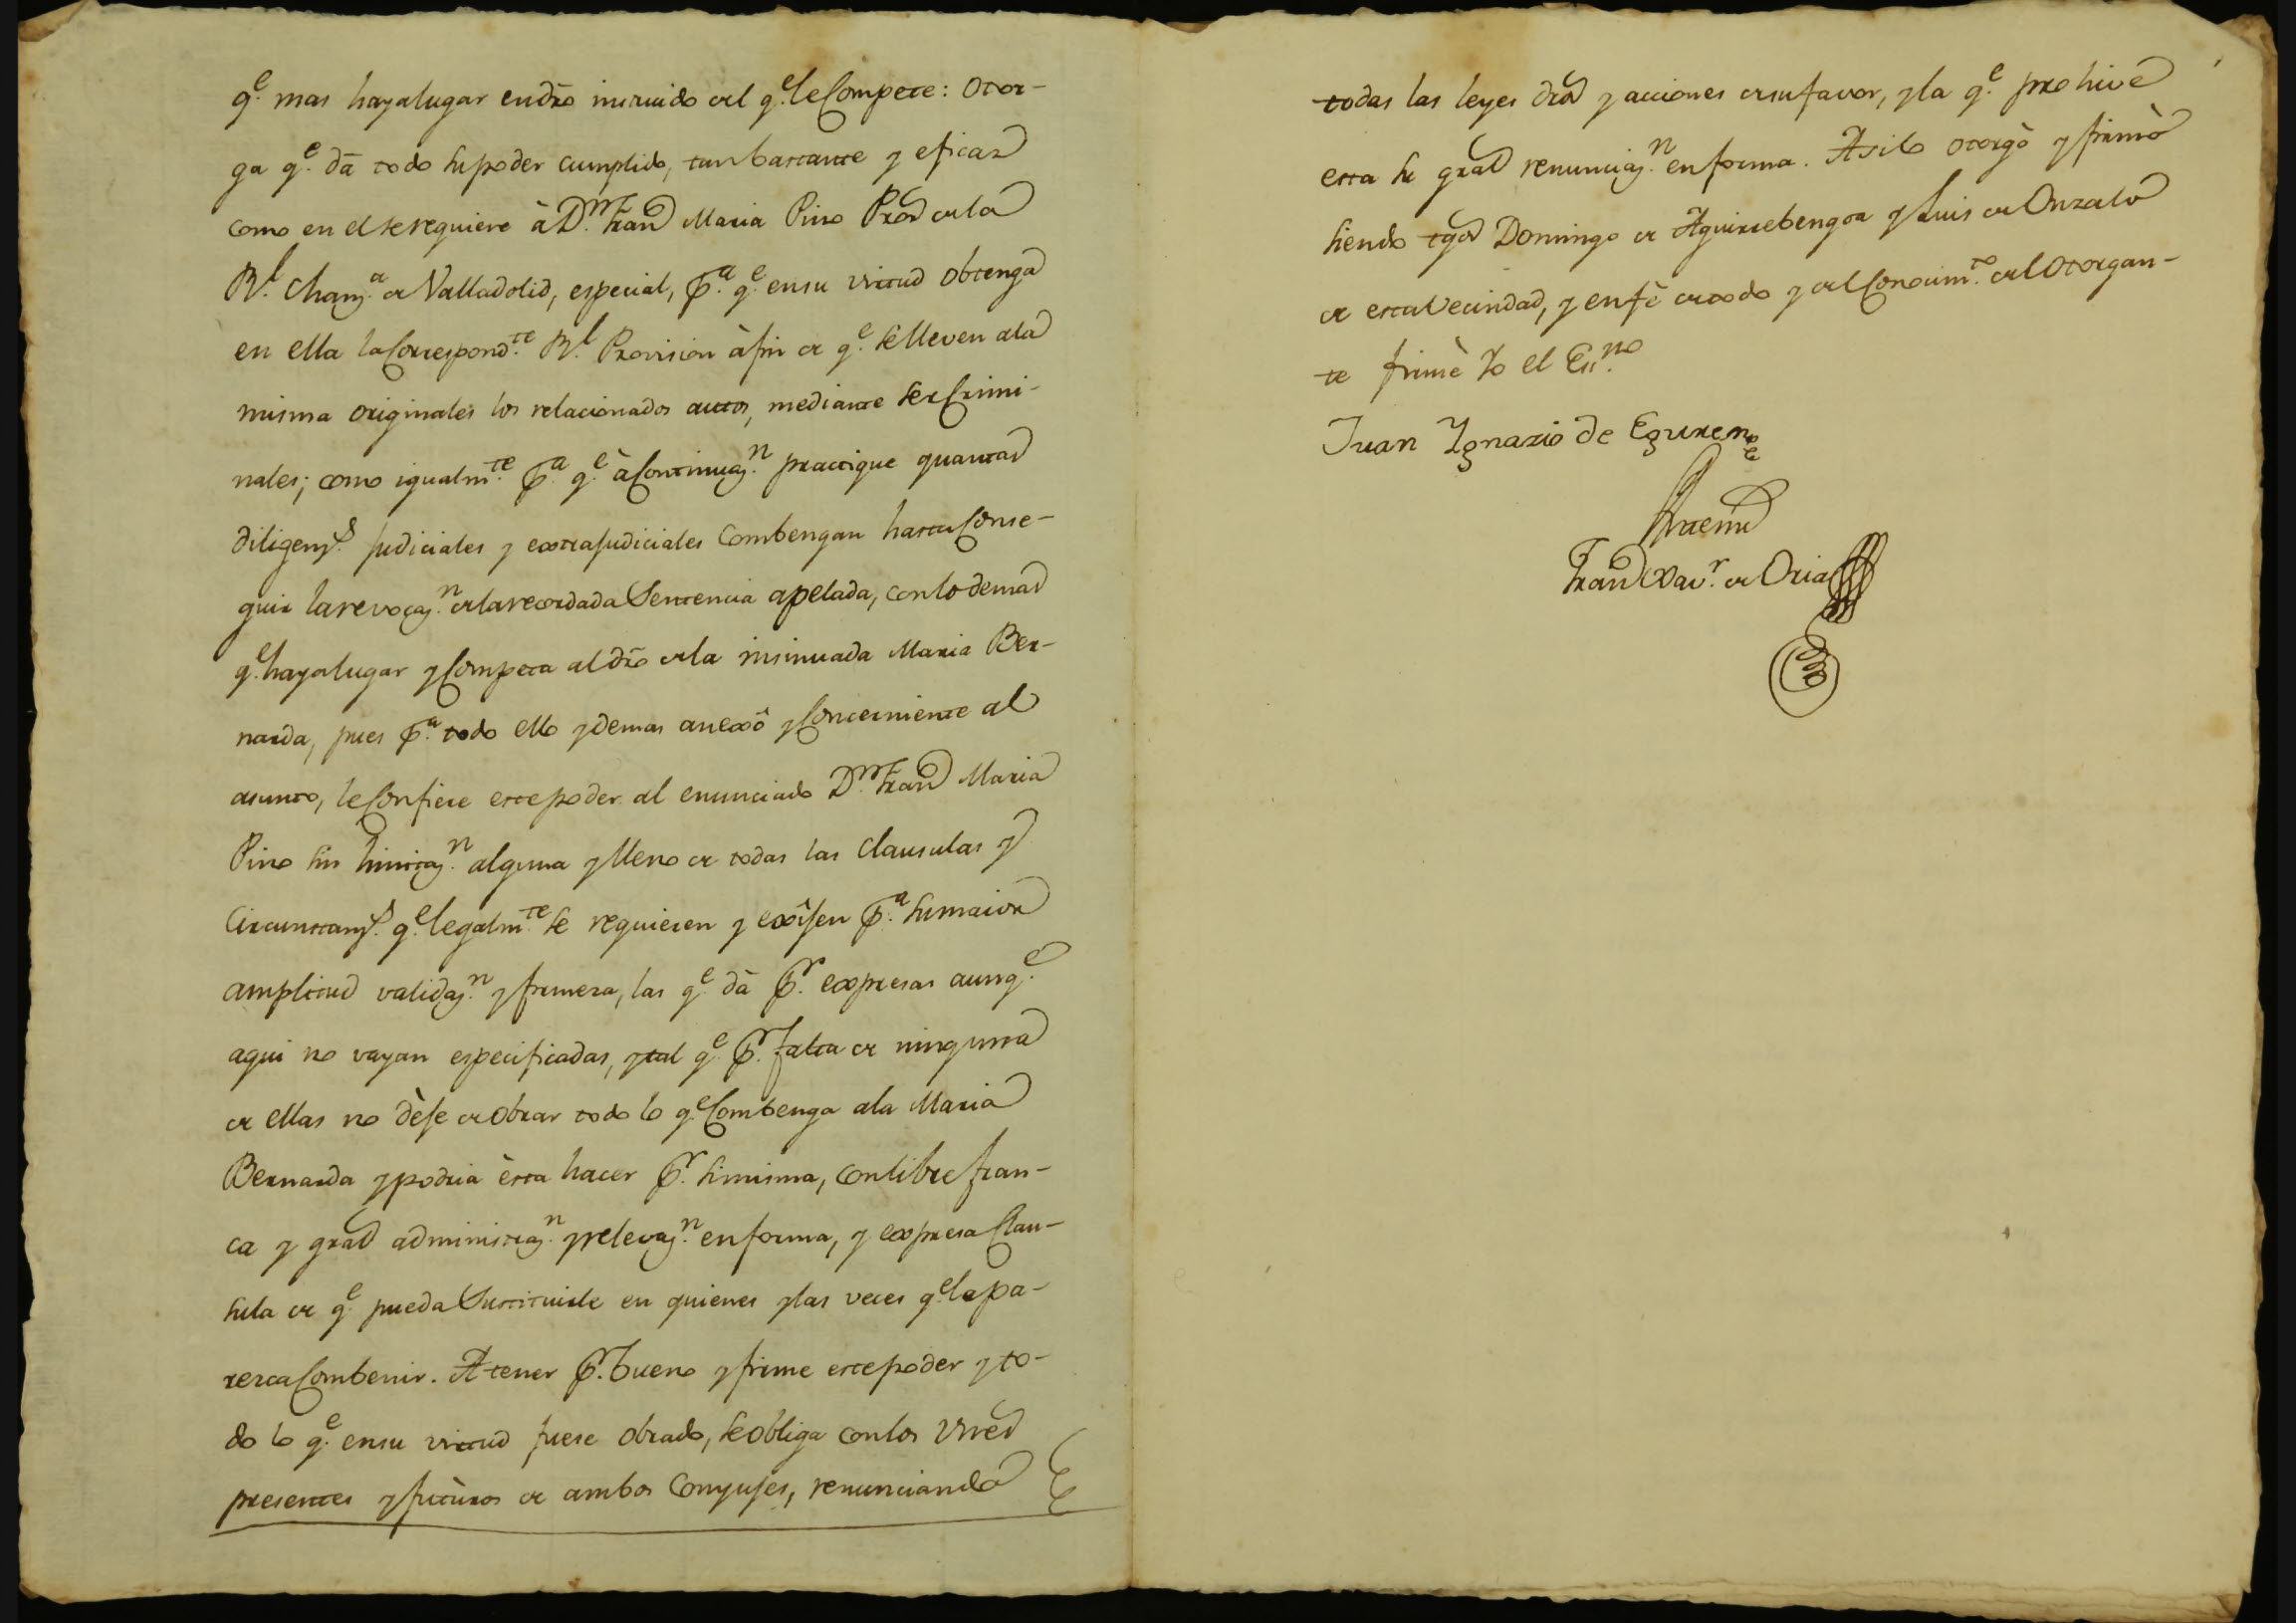 q.e mas haya lugar en dro instruido del q.e le Compete: Otor-
ga q.e dà todo su poder cumplido, tan bastante y eficaz
como en el se requiere à D.n Fran.co Maria Pino Pror de la
R.l Chanz.a de Valladolid, especial, p.a q.e en su virtud obtenga
en ella la Correspond.te R.l Provision à fin de q.e se lleven a la
misma originales los relacionados autos, mediante ser Crimi-
nales; como igualm.te p.a q.e à Continuaz.n practique quantas
diligenz.s judiciales y extrajudiciales Combengan hasta Conse-
guir la revocaz.n de la recordada Sentencia apelada, con lo demas
q.e haya lugar y Competa al dro de la insinuada Maria Ber-
narda, pues p.a todo ello y demas anexô y Concerniente al
asunto, le Confiere este poder al enunciado D.n Fran.co Maria
Pino sin limitaz.n alguna y lleno de todas las clausulas y
Circunstanz.s q.e legalm.te se requieren y exîjen p.a su maior
amplitud validaz.n y firmeza, las q.e dà p.r expresas aunq.e
aqui no vayan especificadas, y tal q.e p.r falta de ninguna
de ellas no dèje de obrar todo lo q.e Combenga a la Maria
Bernarda y podria èsta hacer p.r si misma, con libre fran-
ca y gral administraz.n y relevaz.n en forma, y expresa Clau-
sula de q.e pueda Sustituirle en quienes y las veces q.e le pa-
rezca Combenir. A tener p.r bueno y firme este poder y to-
do lo q.e en su virtud fuese obrado, se obliga con los vnes
presentes y futùros de ambos Conyujes, renunciando
todas las leyes dros y acciones de su favor, y la q.e prohive
esta su gral renunciaz.n en forma. Asi lo otorgò y firmò
siendo tgos Domingo de Aguirrebengoa y Luis de Onzalo
de esta Vecindad, y en fè de todo y del Conocim.to del Otorgan-
te firmè Yo el Es.no
Juan Ygnazio de Eguren
Antemi
Fran.co Xav.r de Oria